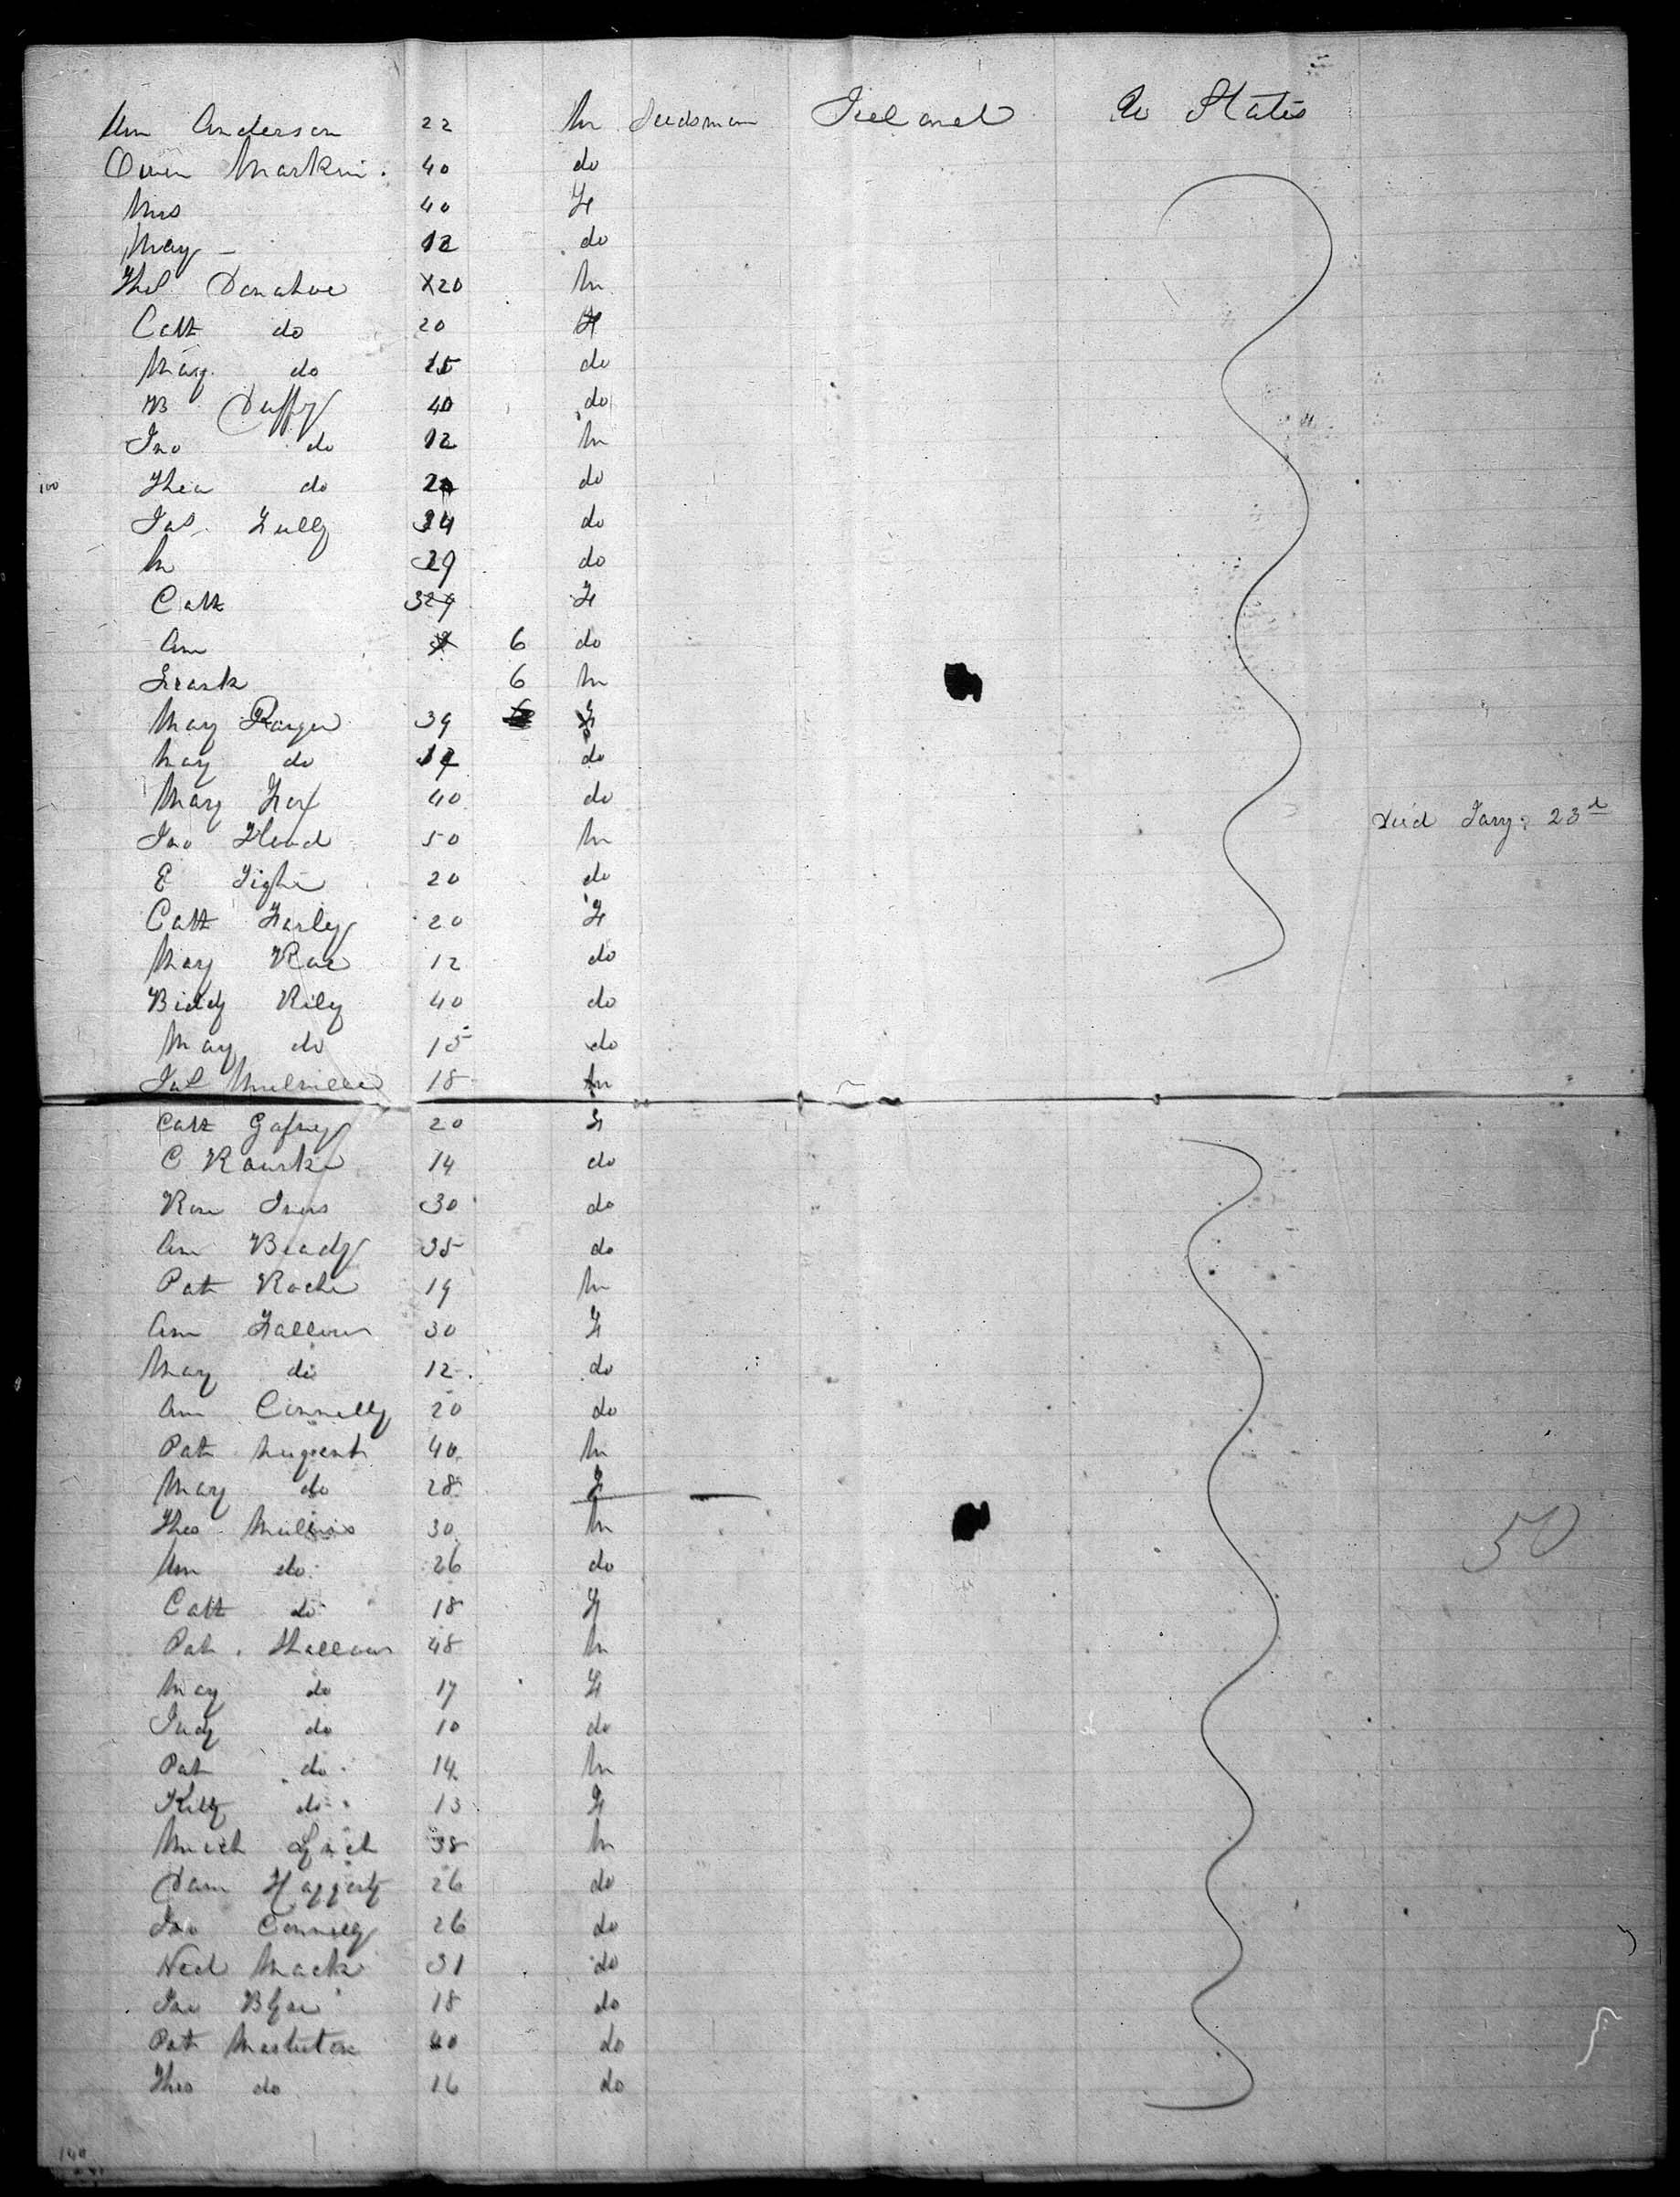 Wm Anderson 22 M Seedsman Ireland U States
Owen 40 do
Mrs 40 F
Mary 12 do
Thos Donahoe 20 M
Cath do 20 F
Mary do 15 do
B Duffy 40 do
Jno do 12 M
100 do do
Jas 34 do
M 29 do
Cath F
Ann 6 do
Frank 6 M
Mary 39 F
Mary do do
Mary Fox 40 do
Jno Flood 50 M Died Jany 23d
E Tighe 20 do
Cath Farly 20 F
Mary 12 do
Biddy Rily 40 do
Mary do 15 do
Jas 18 M
Cath Gafney 20 F
C Rourke 14 do
Rose 30 do
Ann Brady 35 do
Pat Roche 19 M
Ann Fallon 30 F
Mary do 12 do
Ann Connelly 20 do
Pat Nugent 40 M
Mary do 28 F
Thos 30 M 50
Wm do 26 do
Cath do 18 F
Pat 48 M
Mary do 17 F
Judy do 10 do
Pat do 14 M
Kitty do 13 F
Mich 38 M
Dan Haggerty 26 do
Jno Connelly 26 do
Ned Mack 31 do
Jno 18 do
Pat 40 do
Thos do 16 do
140